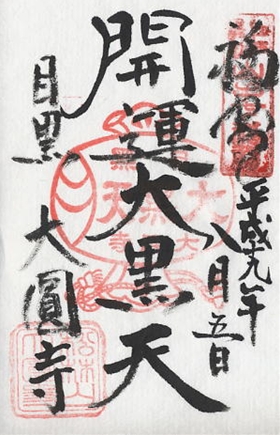 平成十九年
八月五日
開運大黒天
目黒 大圓寺